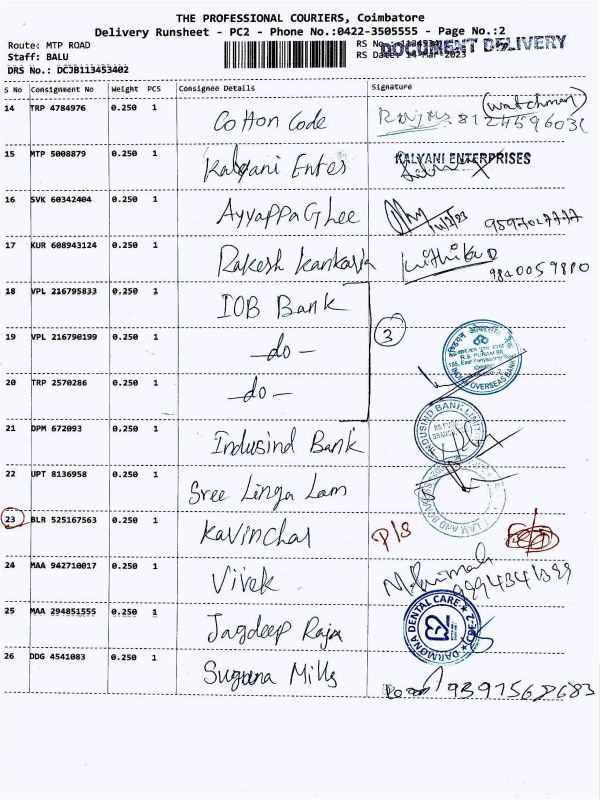 THE PROFESSIONAL COURIERS, Coimbatore
Delivery Runsheet - PC2 - Phone No.:0422-3505555 - Page No.:2
Route: MTP ROAD
RS No.:
DOCUMENT DELIVERY
Staff: BALU
RS Date: 14 Mar 2023
DRS No.: DCJB113453402
S No Consignment No Weight PCS Consignee Details Signature
(watchman)
14 TRP 4784976 0.250 1 Cotton Code
15 MTP 5008879 0.250 1 Kalyani Enter KALYANI ENTERPRISES
16 SVK 60342404 0.250 1 Ayyappa Ghee
17 KUR 608943124 0.250 1 Rakesh Kankaria
9840059880
18 VPL 216795833 0.250 1 IOB Bank
3
19 VPL 216790199 0.250 1 -do-
R.S. PURAM BR
INDIAN OVERSEAS BANK
20 TRP 2570286 0.250 1 -do-
21 DPM 672093 0.250 1 Indusind Bank
INDUSIND BANK LIMITED
22 UPT 8136958 0.250 1 Sree Linga Lam
23 BLR 525167563 0.250 1 Kavinchar P/S
24 MAA 942710017 0.250 1 Vivek
9994341399
25 MAA 294851555 0.250 1 Jagdeep Raja
DARMONA DENTAL CARE
26 DDG 4541083 0.250 1 Suguna Mills